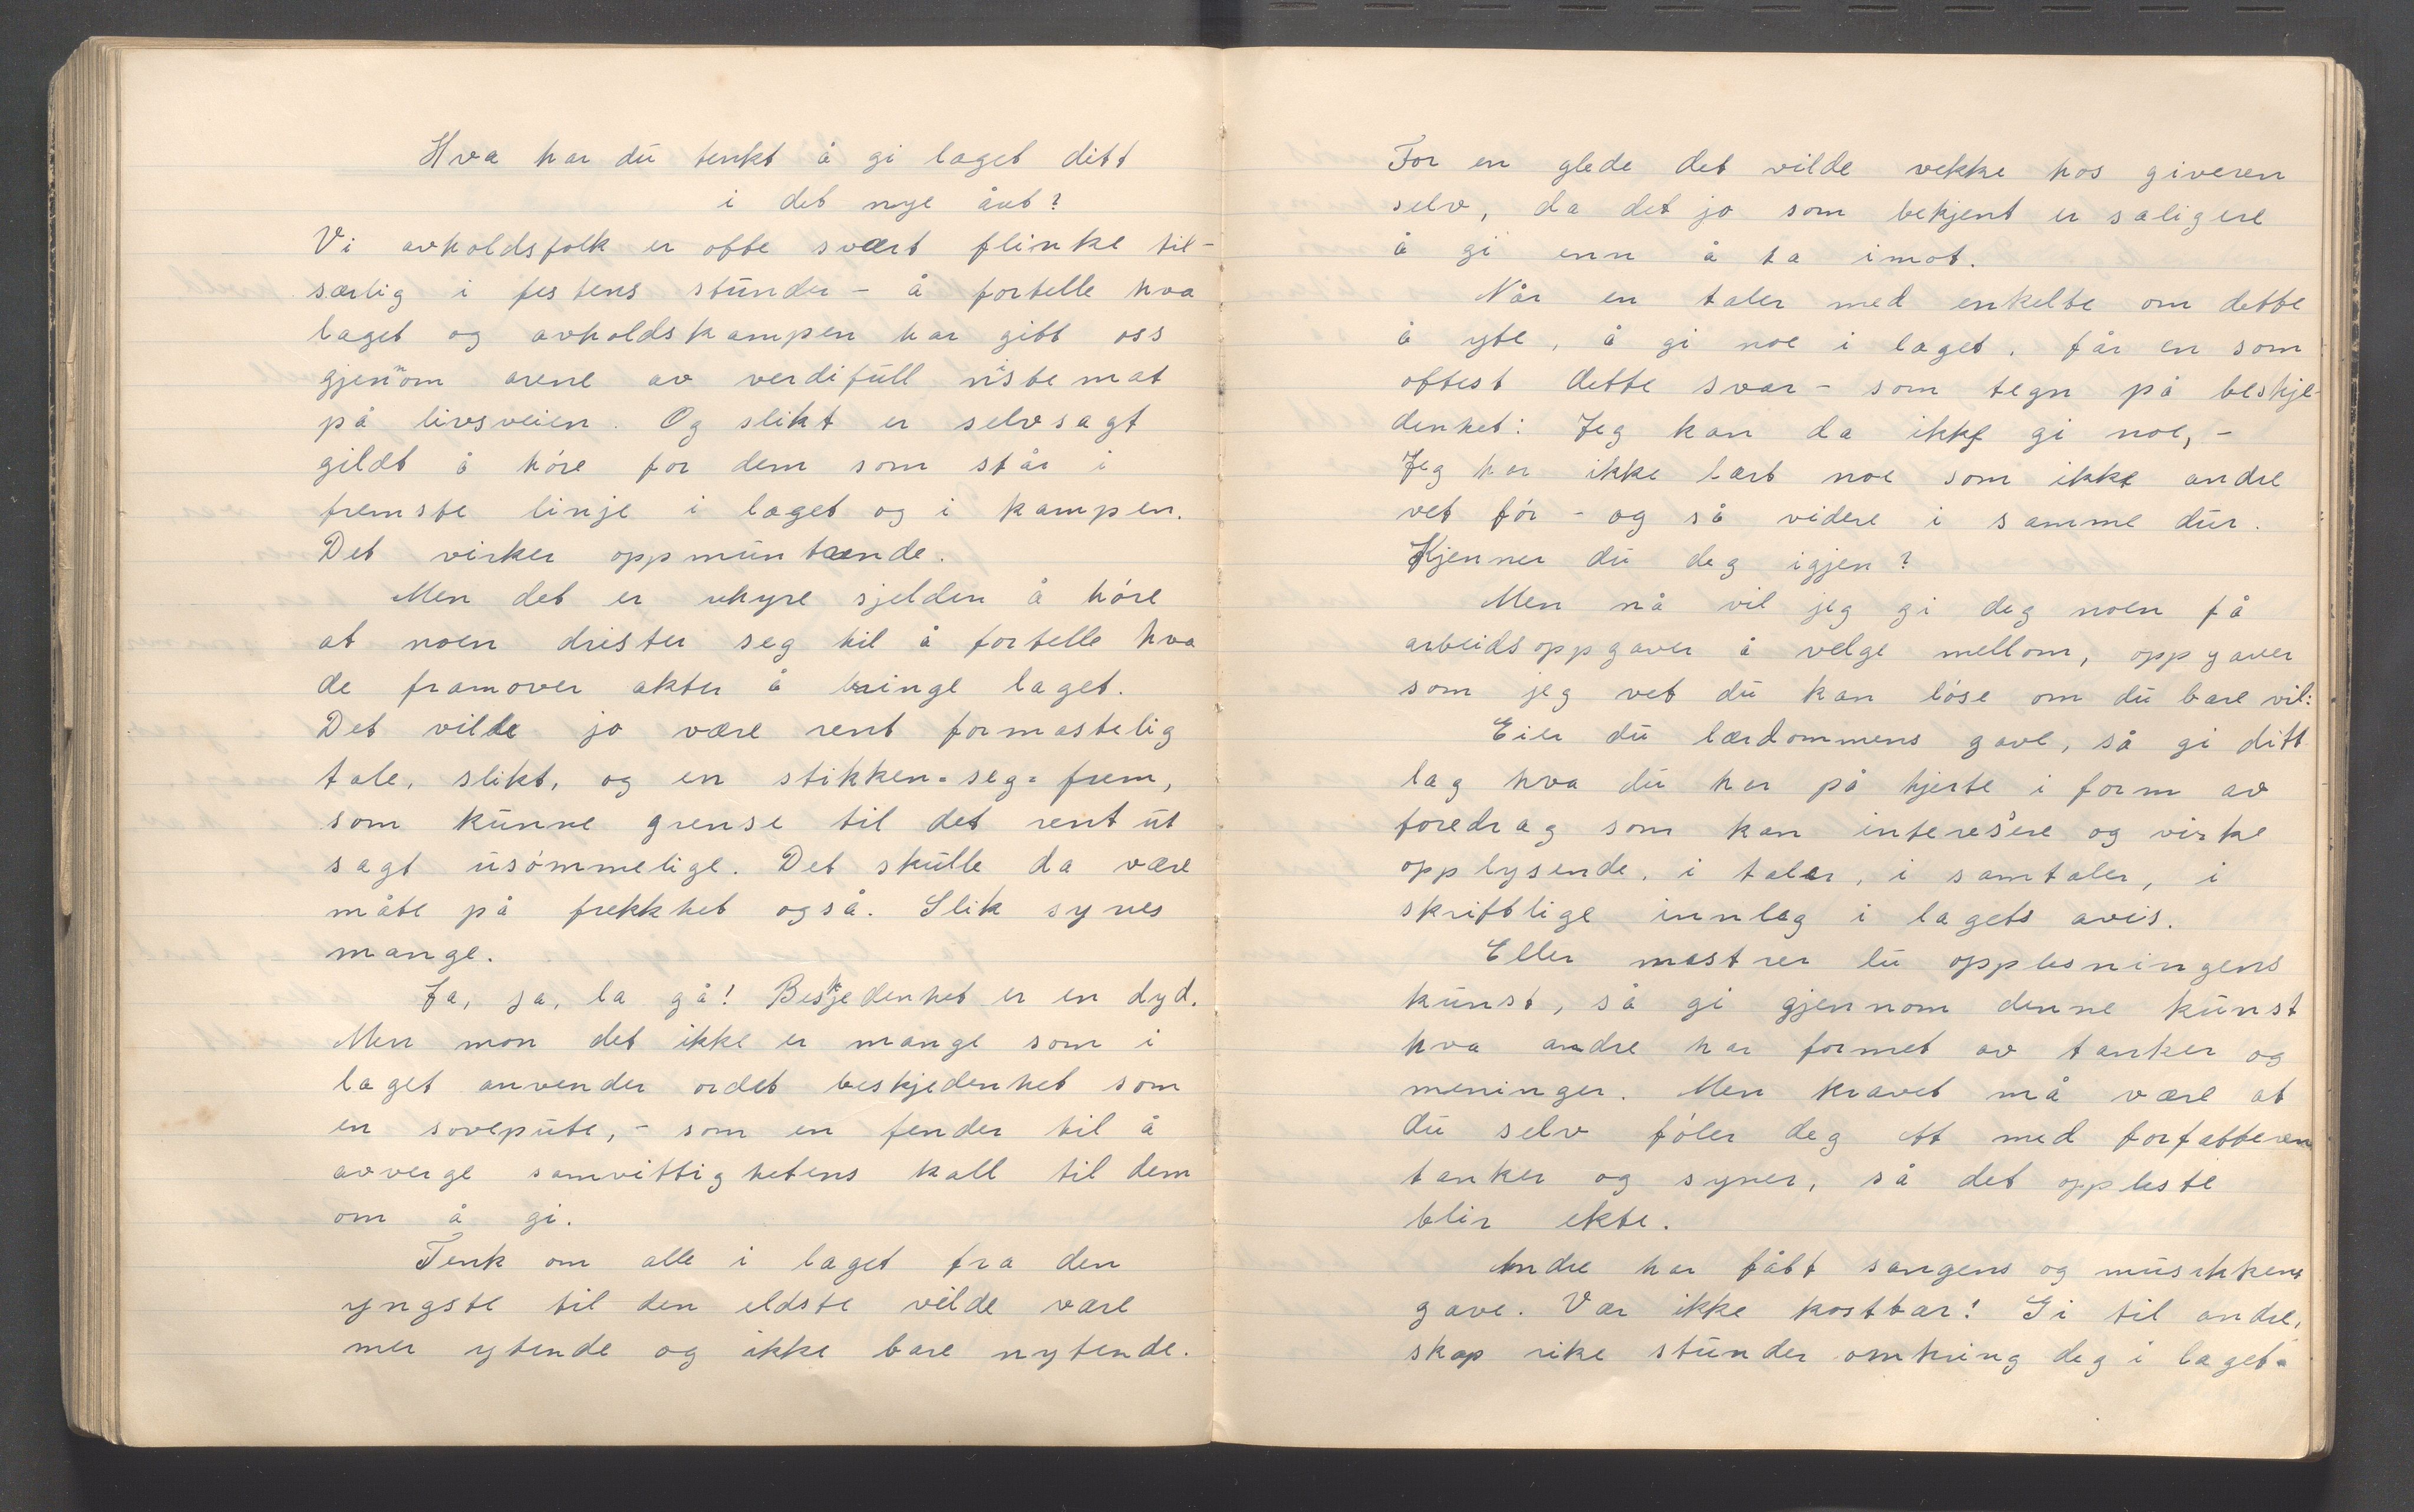 Hva har du tenkt å gi laget ditt
i det nye året?
Vi avholdsfolk er ofte svært flinke til -
særlig i festens stunder - å fortelle hva
laget og avholdskampen har gitt oss
gjennom årene av verdifull nistemat
på livsveien. Og slikt er selvsagt
gildt å høre for dem som står i
fremste linje i laget og i kampen.
Det virker oppmuntrende.
Men det er uhyre sjelden å høre
at noen drister seg til å fortelle hva
de framover akter å bringe laget.
Det vilde jo være rent formastelig
tale, slikt, og en stikken-seg-frem,
som kunne grense til det rent ut
sagt usømmelige. Det skulle da være
måte på frekkhet også. Slik synes
mange.
Ja, ja, la gå! Beskjedenhet er en dyd.
Men mon det ikke er mange som i
laget anvender ordet beskjedenhet som
en sovepute, - som en fender til å
avverge samvittighetens kall til dem
om å gi.
Tenk om alle i laget fra den
yngste til den eldste vilde være
mer ytende og ikke bare nytende.
For en glede det vilde vekke hos giveren
selv, da det jo som bekjent er saligere
å gi enn å ta imot.
Når en taler med enkelte om dette
å yte, å gi noe i laget, får en som
oftest dette svar - som tegn på beskje-
denhet: Jeg kan da ikke gi noe, -
Jeg har ikke lært noe som ikke andre
vet før - og så videre i samme dur.
Kjenner du deg igjen?
Men nå vil jeg gi deg noen få
arbeidsoppgaver å velge mellom, oppgaver
som jeg vet du kan løse om du bare vil:
Eier du lærdommens gave, så gi ditt
lag hva du har på hjerte i form av
foredrag som kan interessere og virke
opplysende, i taler, i samtaler, i
skriftlige innleg i lagets avis.
Eller mestrer du opplesningens
kunst, så gi gjennom denne kunst
hva andre har formet av tanker og
meninger. Men kravet må være at
du selv føler deg ett med forfatteren
tanker og syner, så det oppleste
blir ekte.
Andre har fått sangens og musikkens
gave. Vær ikke kostbar! Gi til andre,
skap rike stunder omkring deg i laget.